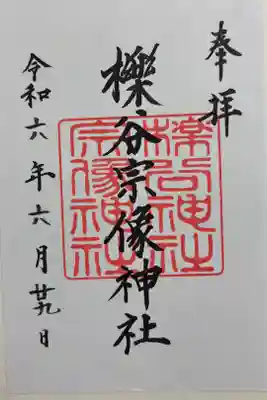 奉拝
櫟谷宗像神社
令和六年六月廿九日
櫟谷神社
宗像神社